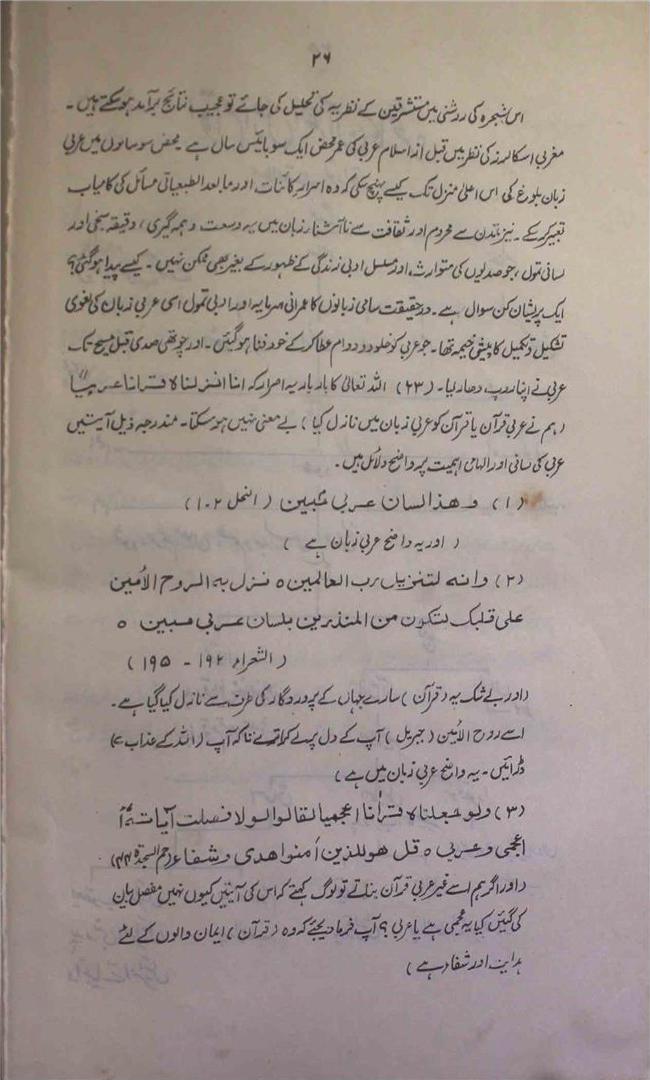 ۲۶
اس شجرہ کی روشنی میں مستشرقین کے نظریہ کی تحلیل کی جائے تو عجیب نتائج برآمد ہو سکتے ہیں۔
مغربی اسکالرز کی نظر میں قبل از اسلام عربی کی عمر محض ایک سو بائیس سال ہے۔ محض سو سالوں میں عربی
زبان بلوغ کی اس اعلیٰ منزل تک کیسے پہنچ سکی کہ وہ اسرار کائنات اور مابعد الطبعیاتی مسائل کی کامیاب
تعبیر کر سکے۔ نیز تمدن سے محروم اور ثقافت سے ناآشنا زبان میں یہ وسعت و ہمہ گیری، دقیقہ سنجی اور
لسانی تمول، جو صدیوں کی متوارث اور مسلسل ادبی زندگی کے ظہور کے بغیر بھی ممکن نہیں۔ کیسے پیدا ہو گئی؟
ایک پریشان کن سوال ہے۔ درحقیقت سامی زبانوں کا عمرانی سرمایہ اور ادبی تمول اسی عربی زبان کی لغوی
تشکیل و تکمیل کا پیش خیمہ تھا۔ جو عربی کو خلود و دوام عطا کر کے خود فنا ہو گئیں۔ اور چوتھی صدی قبل مسیح تک
عربی نے اپنا روپ دھار لیا۔ (۲۳) اللہ تعالیٰ کا بار بار یہ اصرار کہ انا انزلناہ قراٰنا عربیاً
(ہم نے عربی قرآن یا قرآن کو عربی زبان میں نازل کیا) بے معنی نہیں ہو سکتا۔ مندرجہ ذیل آیتیں
عربی کی لسانی اور الہامی اہمیت پر واضح دلائل ہیں۔
(۱) وھذا لسان عربی مبین (النحل ۱۰۲)
(اور یہ واضح عربی زبان ہے)
(۲) وانہ لتنزیل رب العالمین ٥ نزل بہ الروح الأمین
علی قلبک لتکون من المنذرین بلسان عربی مبین ٥
(الشعراء ۱۹۲ - ۱۹۵)
(اور بے شک یہ (قرآن) سارے جہاں کے پروردگار کی طرف سے نازل کیا گیا ہے۔
اسے روح الأمین (جبریل) آپ کے دل پر لے کر اترے تاکہ آپ (اللہ کے عذاب سے)
ڈرائیں۔ یہ واضح عربی زبان میں ہے)
(۳) ولو جعلناہ قراٰنا اعجمیا لقالوا لولا فصلت آیاتہ أ
اعجمی وعربی ٥ قل ھو للذین اٰمنوا ھدی وشفاء (حم السجدۃ ۴۴)
(اور اگر ہم اسے غیر عربی قرآن بناتے تو لوگ کہتے کہ اس کی آیتیں کیوں نہیں مفصل بیان
کی گئیں کیا یہ عجمی ہے یا عربی؟ آپ فرما دیجئے کہ وہ (قرآن) ایمان والوں کے لئے
ہدایت اور شفا (ہے)